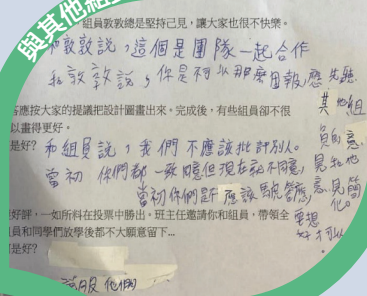 與其他組
組員敦敦總是堅持己見，讓大家也很不快樂。
和敦敦說，這個是團隊一起合作
和敦敦說，你是不可以那麼固執，應先聽
其他組
員的意
見和他
意見簡
化。
答應按大家的提議把設計圖畫出來。完成後，有些組員卻不很
以畫得更好。
是好？
和組員說，我們不應該批評別人。
當初你們都一致同意但現在就不同意，
當初你們 應該 意，
要想
才可以
好評，一如所料在投票中勝出。班主任邀請你和組員，帶領全
組員和同學們放學後都不大願意留下...
是好？
說服他們